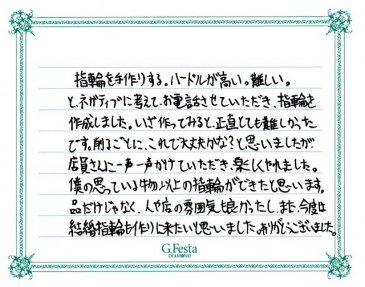 指輪を手作りする。ハードルが高い。難しい。
と、ネガティブに考えて、お電話させていただき、指輪を
作成しました。いざ作ってみると、正直とても難しかった
です。削るごとに、これで大丈夫かな?と思いましたが
店員さんに一声一声かけていただき、楽しくやれました。
僕の思っている物以上の指輪ができたと思います。
品だけじゃなく、人や店の雰囲気も良かったし、また、今度は
結婚指輪を作りに来たいと思いました。ありがとうございました。
G.Festa
DIAMOND